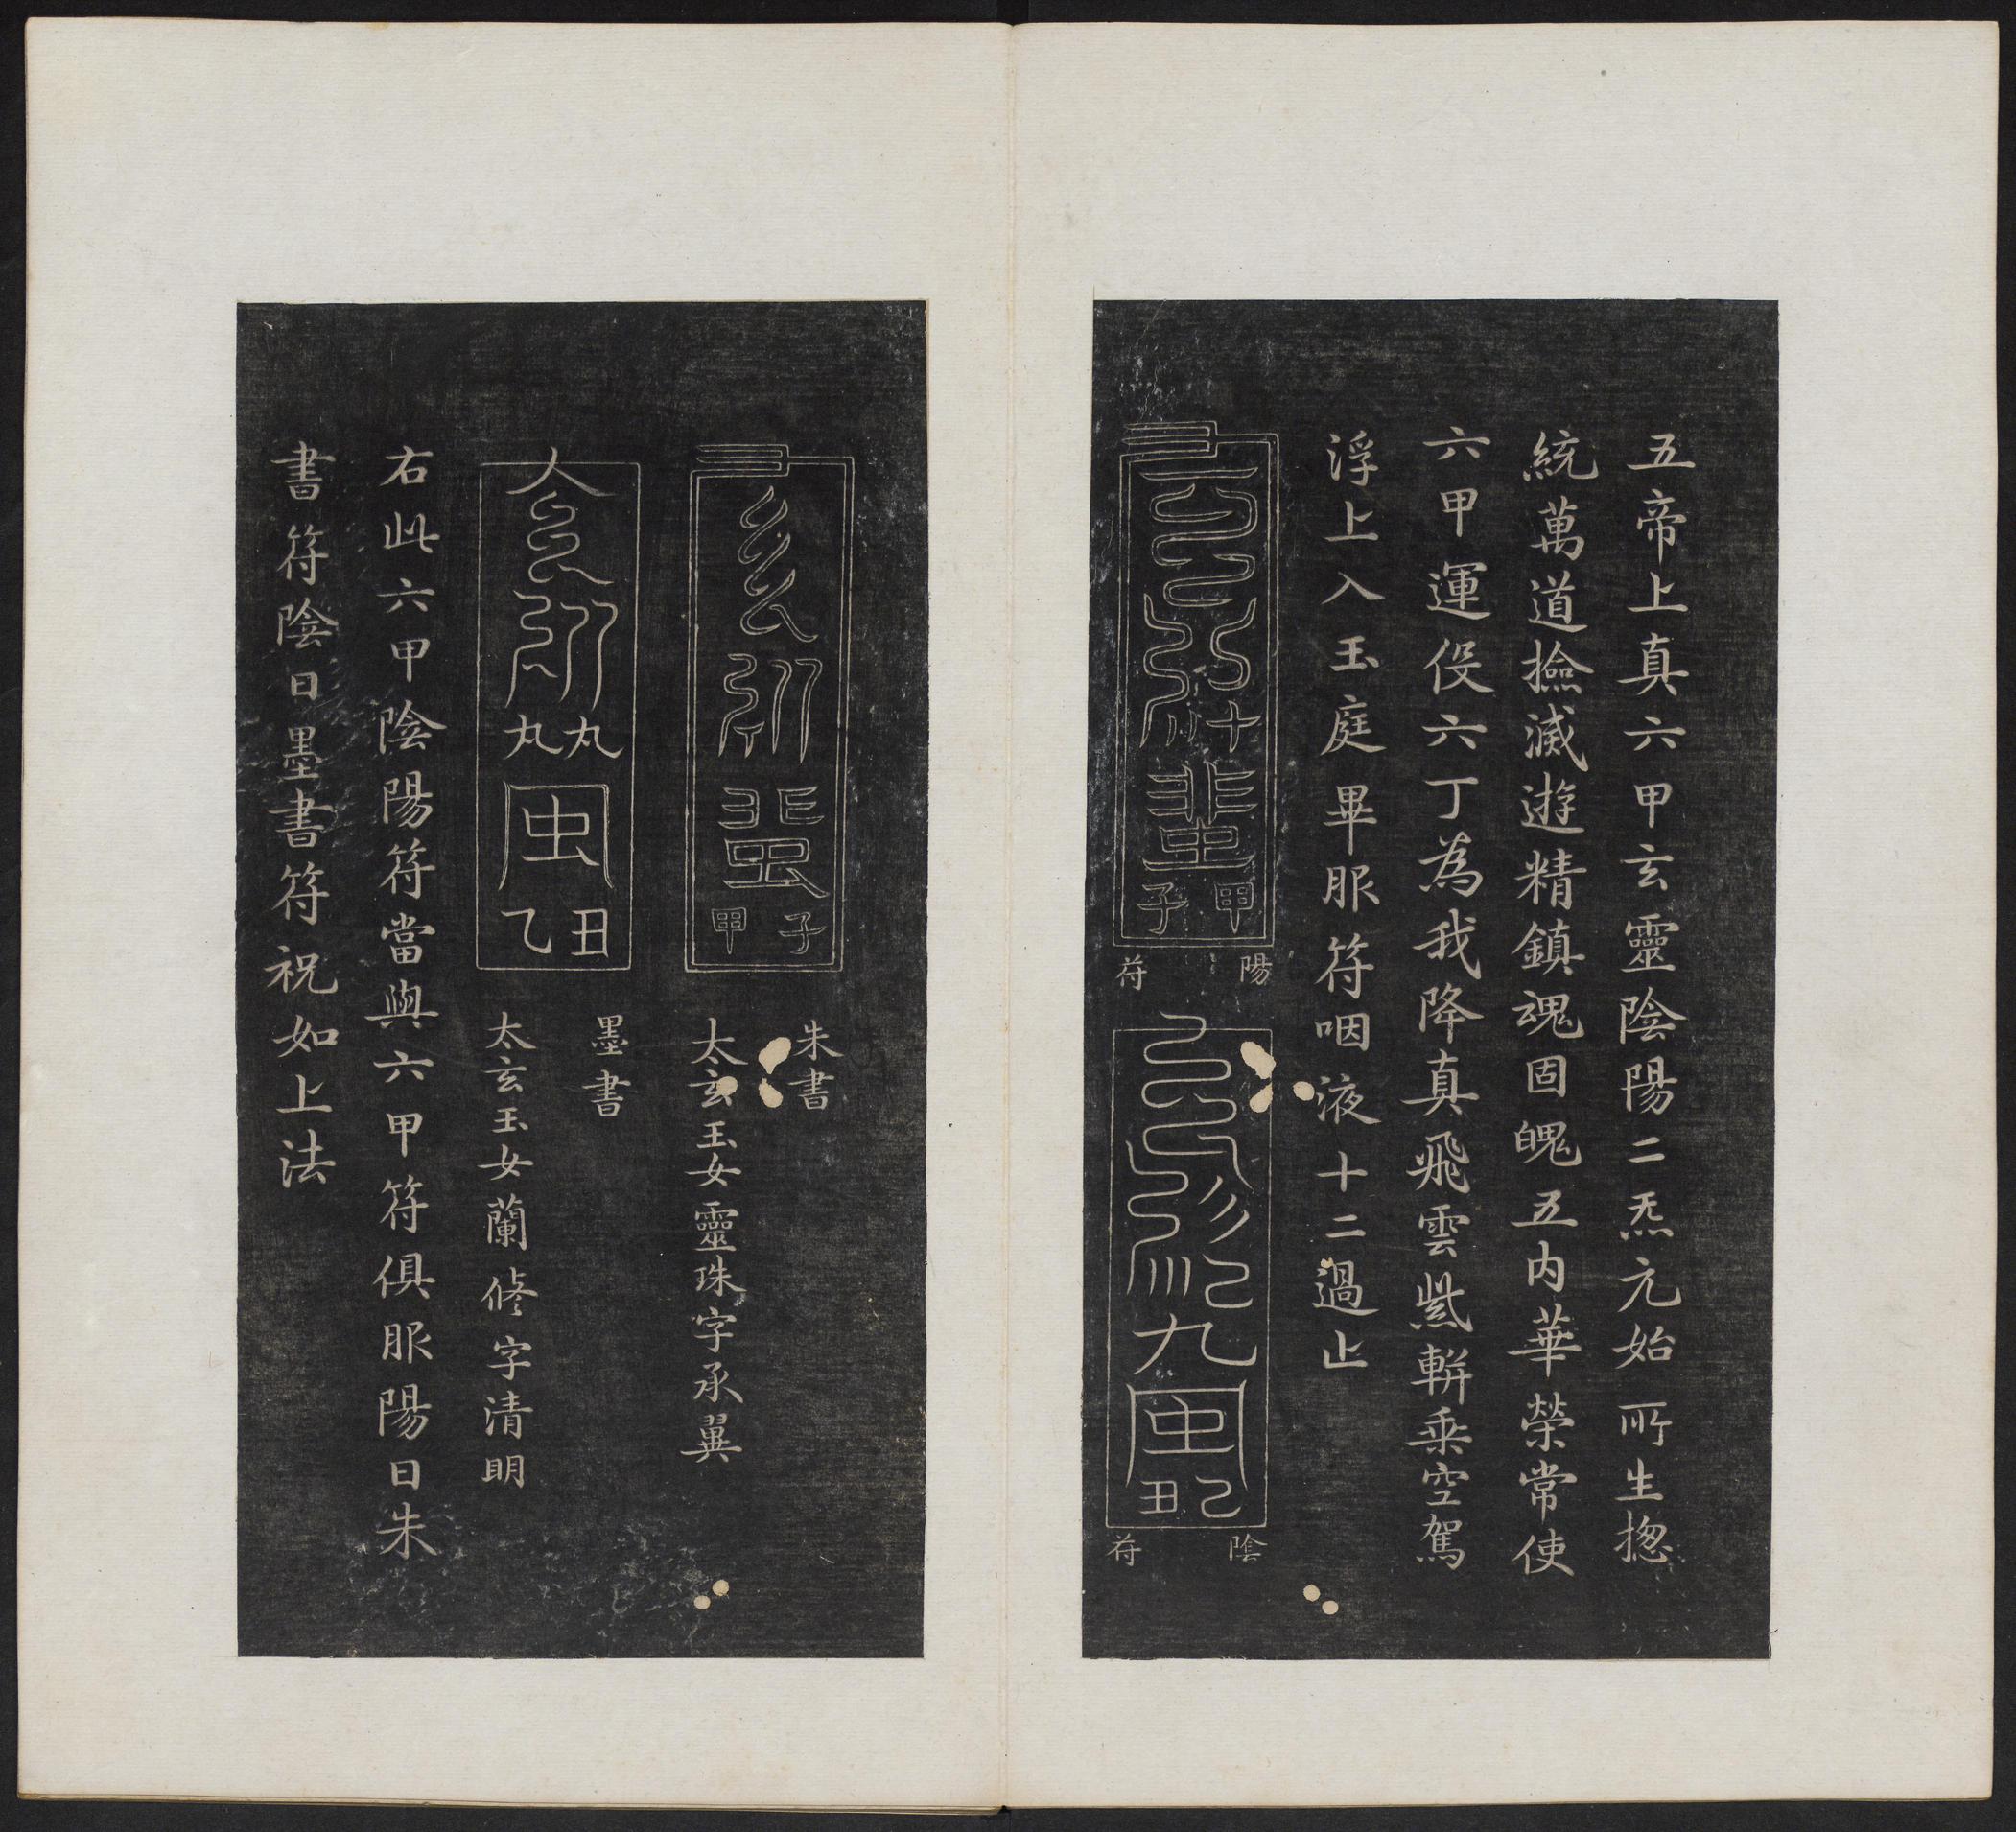 五帝上真六甲玄靈陰陽二炁元始所生揔
統萬道撿滅遊精鎮魂固魄五内華榮常使
六甲運役六丁為我降真飛雲紫軿乗空駕
浮上入玉庭畢服符咽液十二過止
甲子
陽符
己丑
陰符
子甲
朱書
太玄玉女靈珠字承翼
丑乙
墨書
太玄玉女蘭修字清明
右此六甲陰陽符當與六甲符俱服陽日朱
書符陰日墨書符祝如上法